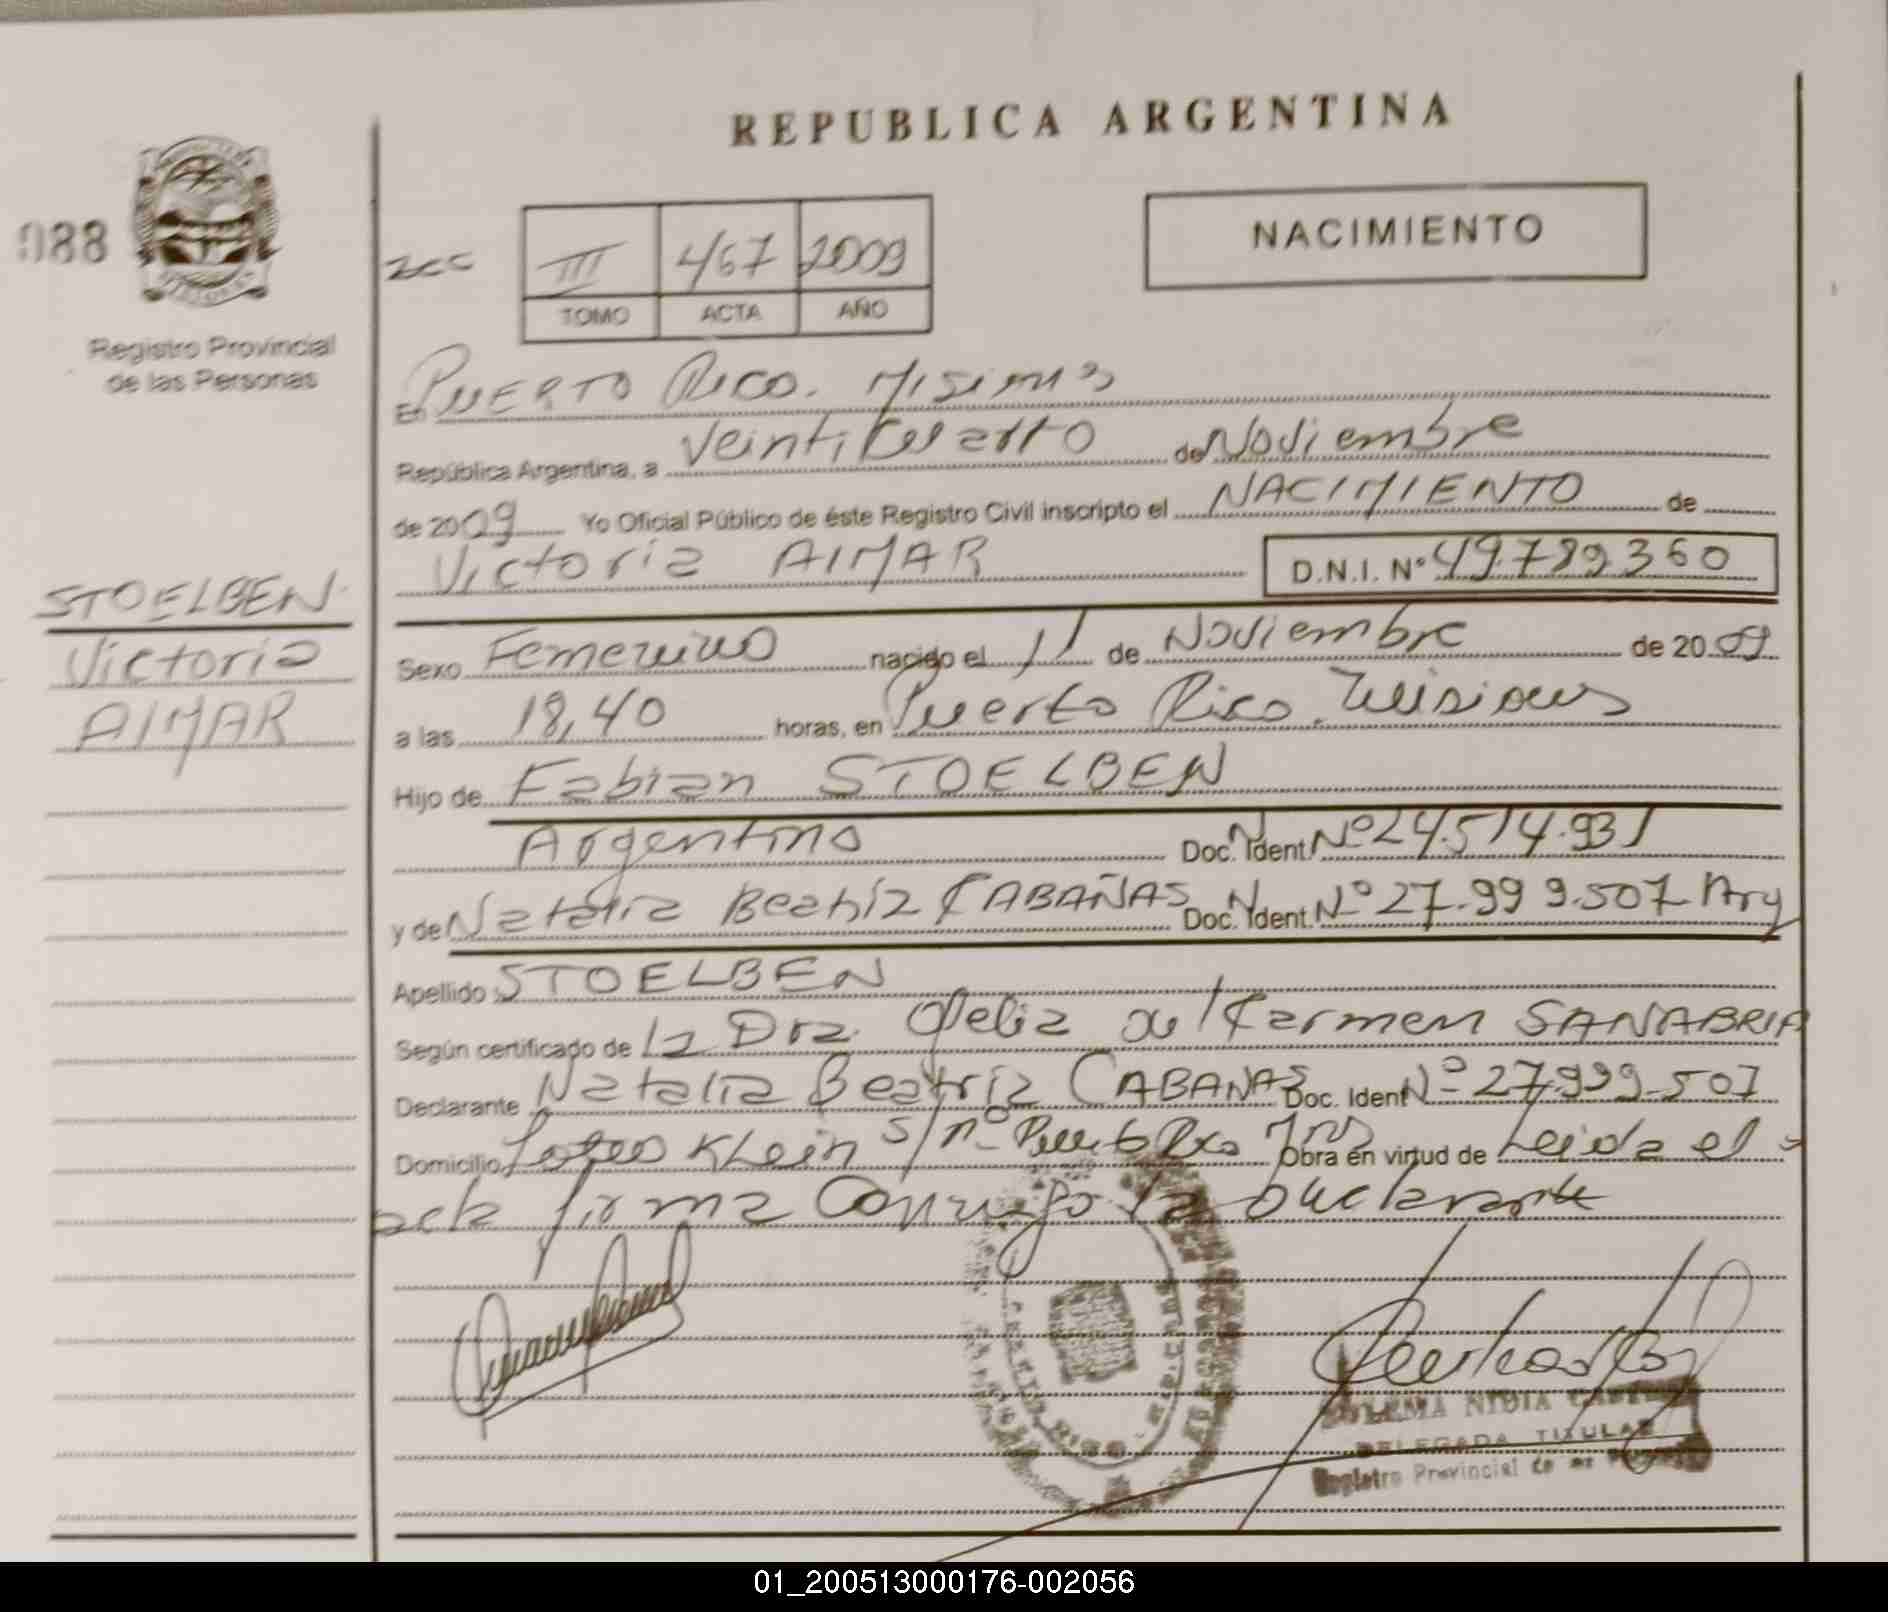 REPUBLICA ARGENTINA
088
NACIMIENTO
2cc
III 467 2009
TOMO ACTA AÑO
Registro Provincial
de las Personas
En PUERTO RICO. Misiones
República Argentina, a Veinticuatro de Noviembre
de 2009 Yo Oficial Público de éste Registro Civil inscripto el NACIMIENTO de
Victoria AIMAR D.N.I. Nº 49.789360
STOELBEN
Victoria
AIMAR
Sexo Femenino nacido el 11 de Noviembre de 2009
a las 18,40 horas, en Puerto Rico. Misiones
Hijo de Fabian STOELBEN
Argentino Doc. Ident. Nº 24.514.931
y de Natalia Beatriz CABAÑAS Doc. Ident. Nº 27.999.507 Arg
Apellido STOELBEN
Según certificado de la Dra. Ofelia del Carmen SANABRIA
Declarante Natalia Beatriz CABAÑAS Doc. Ident Nº 27.999.507
Domicilio Loteo Klein S/nº Puerto Rico Mns Obra en virtud de Leida el a
acta firma conmigo la declarante
NIDIA
DELEGADA TITULAR
Registro Provincial de las
01_200513000176-002056